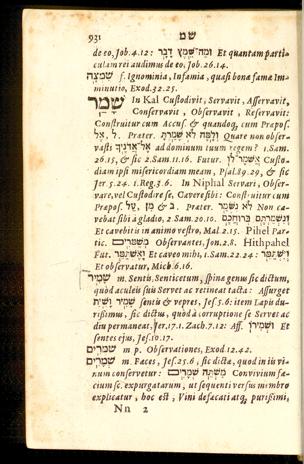 931 שמ
de eo, Job. 4.12: וּמַה־שֵּׁמֶץ דָּבָר Et quantam particulam
rei audimus de eo, Job. 26.14.
שִׁמְצָה f. Ignominia, Infamia, quasi bonæ famæ Imminutio,
Exod. 32.25.
שָׁמַר In Kal Custodivit, Servavit, Asservavit,
Conservavit, Observavit, Reservavit:
Construitur cum Accus. & quandoq, cum Præpos.
ל, אל. Præter. וְלָמָּה לֹא שָׁמַרְתָּ Quare non observasti
אֶל־אֲדֹנֶיךָ ad dominum tuum regem? 1. Sam.
26.15, & sic 2. Sam. 11.16. Futur. אֶשְׁמָר־לוֹ Custodiam
ipsi misericordiam meam, Psal. 89.29, & sic
Jer. 5.24. 1. Reg. 3.6. In Niphal Servari, Observare,
vel Custodire se, Cavere sibi: Construitur cum
Præpos. ב, מן, על. Præter. לֹא נִשְׁמַר Non cavebat
sibi à gladio, 2 Sam. 20.10. וְנִשְׁמַרְתֶּם בְּרוּחֲכֶם
Et cavebitis in animo vestro, Mal. 2.15. Pihel Partic.
מְשַׁמְּרִים Observantes, Jon. 2.8. Hithpahel
Fut. וָאֶשְׁתַּמֵּר Et caveo mihi, 1. Sam. 22.24: וְיִשְׁתַּמֵּר
Et observatur, Mich. 6.16.
שָׁמִיר m. Sentis, Senticetum, spina genus sic dictum,
quòd aculeis suis Servet ac retineat tacta: Assurget
שָׁמִיר וָשָׁיִת sentis & vepres, Jes. 5.6: item Lapis durissimus,
sic dictus, quòd à corruptione se Servet ac
diu permaneat, Jer. 17.1. Zach. 7.12: Aff. וּשְׁמִירוֹ Et
sentes ejus, Jes. 10.17.
שִׁמֻּרִים m p. Observationes, Exod. 12.42.
שְׁמָרִים m. Fæces, Jes. 25.6, sic dicta, quod in iis vinum
conservetur: מִשְׁתֵּה שְׁמָרִים Convivium fæcium
sc. expurgatarum, ut sequenti versus membro
explicatur, hoc est, Vini defæcati atq, purissimi,
Nn 2